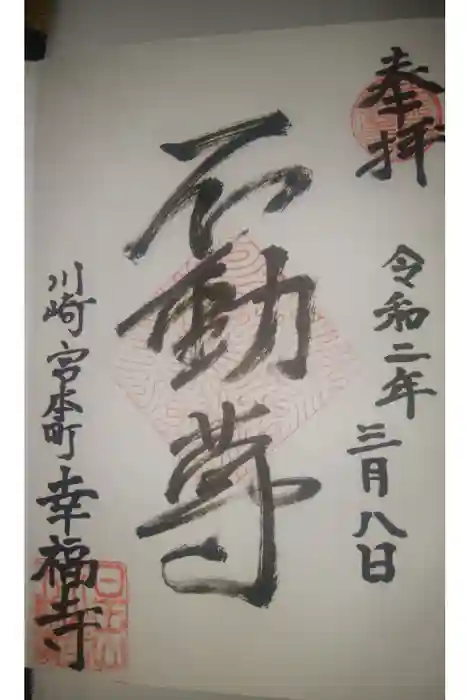 奉拝
令和二年
三月八日
不動尊
川崎宮本町幸福寺